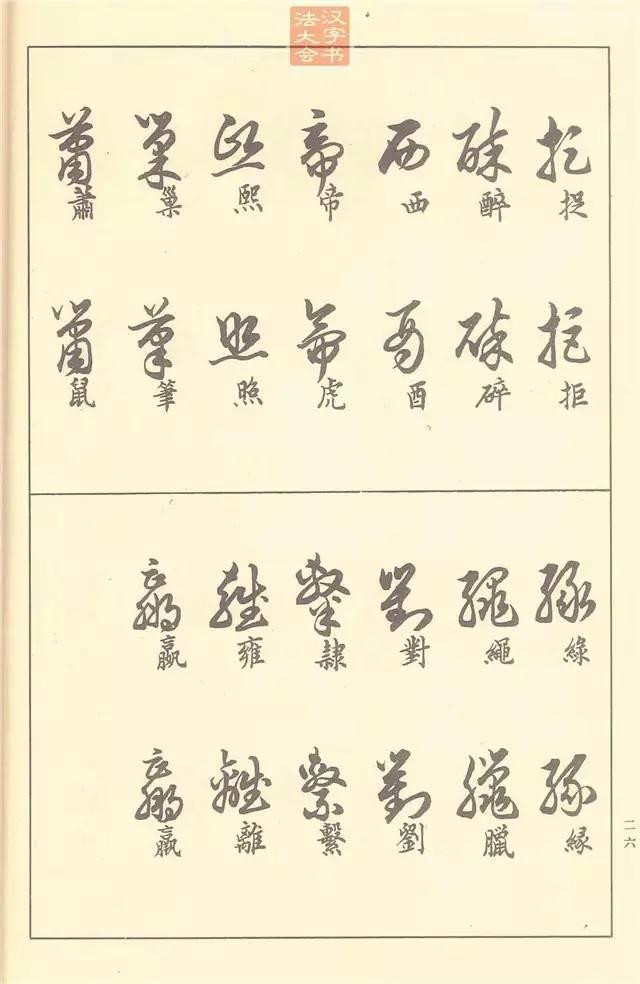 汉字书
法大会
捉 拒
醉 碎
西 酉
帝 虎
熙 照
巢 筆
蕭 鼠
綠 緣
繩 臘
對 劉
隸 繫
雍 離
二六